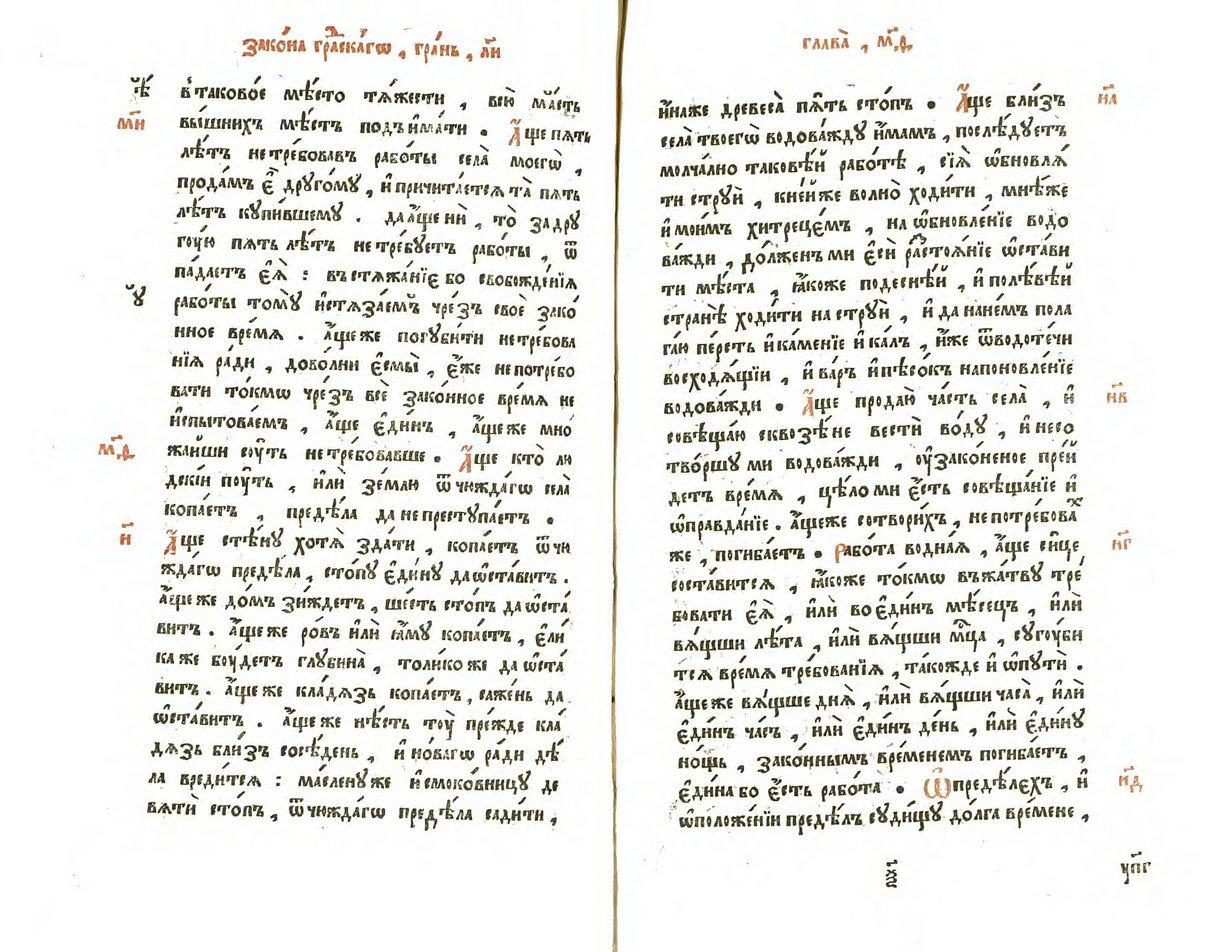 Зако́на гра́дскагѡ , гра́нь , л҃и
в таково́е мѣ́сто тѧ́жести , всю̀ ма́сть
вы́шнихъ мѣ́стъ под̾има́ти . А҆́ще пѧ́ть
м҃и
лѣ́тъ не тре́бовавъ рабо́ты села̀ моегѡ̀ ,
прода́мъ є҆̀ друго́му , и҆ причита́етсѧ та̀ пѧ́ть
лѣ́тъ купи́вшему . да а҆́ще нѝ , то̀ за дру
гу́ю пѧ́ть лѣ́тъ не тре́буетъ рабо́ты , ѿ
па́даетъ є҆ѧ̀ : въ стѧжа́нїе бо свобожде́нїѧ
рабо́ты тому̀ и҆стѧза́емꙋ чре́зъ своѐ зако́
нное вре́мѧ . а҆́ще же погуби́ти не тре́бова
нїѧ ра́ди , дово́лни є҆смы̀ , є҆́же не потре́бо
вати то́кмѡ чре́зъ всѐ зако́нное вре́мѧ не
и҆спытова́емъ , а҆́ще є҆ди́нъ , а҆́ще же мно́
жайши су́ть не тре́бовавше . А҆́ще кто̀ лю
м҃ѳ
дскі́и пу́ть , и҆лѝ зе́млю ѿ чю́ждагѡ села̀
копа́етъ , предѣ́ла да не преступа́етъ .
А҆́ще стѣ́ну хотѧ̀ зда́ти , копа́етъ ѿ чю́
н҃
ждагѡ предѣ́ла , стопу̀ є҆ди́ну да ѡ҆ста́витъ .
а҆́ще же до́мъ зи́ждетъ , ше́сть сто́пъ да ѡ҆ста́
витъ . а҆́ще же ро́въ и҆лѝ ꙗ҆́му копа́етъ , є҆ли́
ка же бу́детъ глубина̀ , толи́ко же да ѡ҆ста́
витъ . а҆́ще же кла́дѧзь копа́етъ , саже́нь да
ѡ҆ста́витъ . а҆́ще же нѣ́сть ту̀ пре́жде кла́
дѧзь бли́зъ сосѣ́день , и҆ но́вагѡ ра́ди дѣ́
ла вреди́тсѧ : ма́слену же и҆ смоко́вницу де́
вѧти сто́пъ , ѿ чю́ждагѡ предѣ́ла сади́ти ,
глава̀ , м҃ѳ
и҆́наже древеса̀ пѧ́ть сто́пъ . А҆́ще бли́зъ
н҃а
села̀ твоегѡ̀ водова́жду и҆́мамъ , послѣ́дуетъ
молча́лно таковѣ́й рабо́тѣ , сїѧ̀ ѡ҆бновлѧ́
ти струй , к не́йже во́лно ходи́ти , мнѣ́ же
и҆ мои́мъ хитреце́мъ , на ѡ҆бновле́нїе водо
ва́жди , до́лженъ ми є҆сѝ разстоѧ́нїе ѡ҆ста́ви
ти мѣ́ста , ꙗ҆́коже по десне́й , и҆ по лѣ́вѣй
странѣ̀ ходи́ти на струй , и҆ да на не́мъ пола
га́ю пе́рсть и҆ ка́менїе и҆ ка́лъ , и҆́же ѿ водоте́чи
восходѧ́щїи , и҆ ва́ръ и҆ пѣсо́къ на поновле́нїе
водова́жди . А҆́ще продаю̀ ча́сть села̀ , и҆
н҃в
совѣща́ю сквозѣ́ не вестѝ во́ду , и҆ не со
тво́ршу ми водова́жди , ᲂу҆зако́неное пре́й
детъ вре́мѧ , цѣ́ло ми є҆́сть совѣща́нїе и҆
ѡ҆правда́нїе . а҆́ще же сотвори́хъ , не потре́бовахъ
же , погиба́етъ . Рабо́та во́днаѧ , а҆́ще си́це
н҃г
соста́витсѧ , ꙗ҆́коже то́кмѡ въ жа́тву тре́
бовати є҆ѧ̀ , и҆лѝ во є҆ди́нъ мѣ́сецъ , и҆лѝ
вѧ́щши лѣ́та , и҆лѝ вѧ́щши мц҃а , сугу́би
тсѧ вре́мѧ тре́бованїѧ , та́кожде и҆ ѡ҆ пути́ .
а҆́ще же вѧ́щше днѧ̀ , и҆лѝ вѧ́щши часа̀ , и҆лѝ
є҆ди́нъ ча́съ , и҆лѝ є҆ди́нъ де́нь , и҆лѝ є҆ди́ну
но́щь , зако́ннымъ вре́менемъ погиба́етъ ,
є҆ди́на бо є҆́сть рабо́та . Ѡ҆ предѣ́лехъ , и҆
н҃д
ѡ҆ положе́нїи предѣ́лъ су́дищу до́лга вре́мене ,
уп҃г